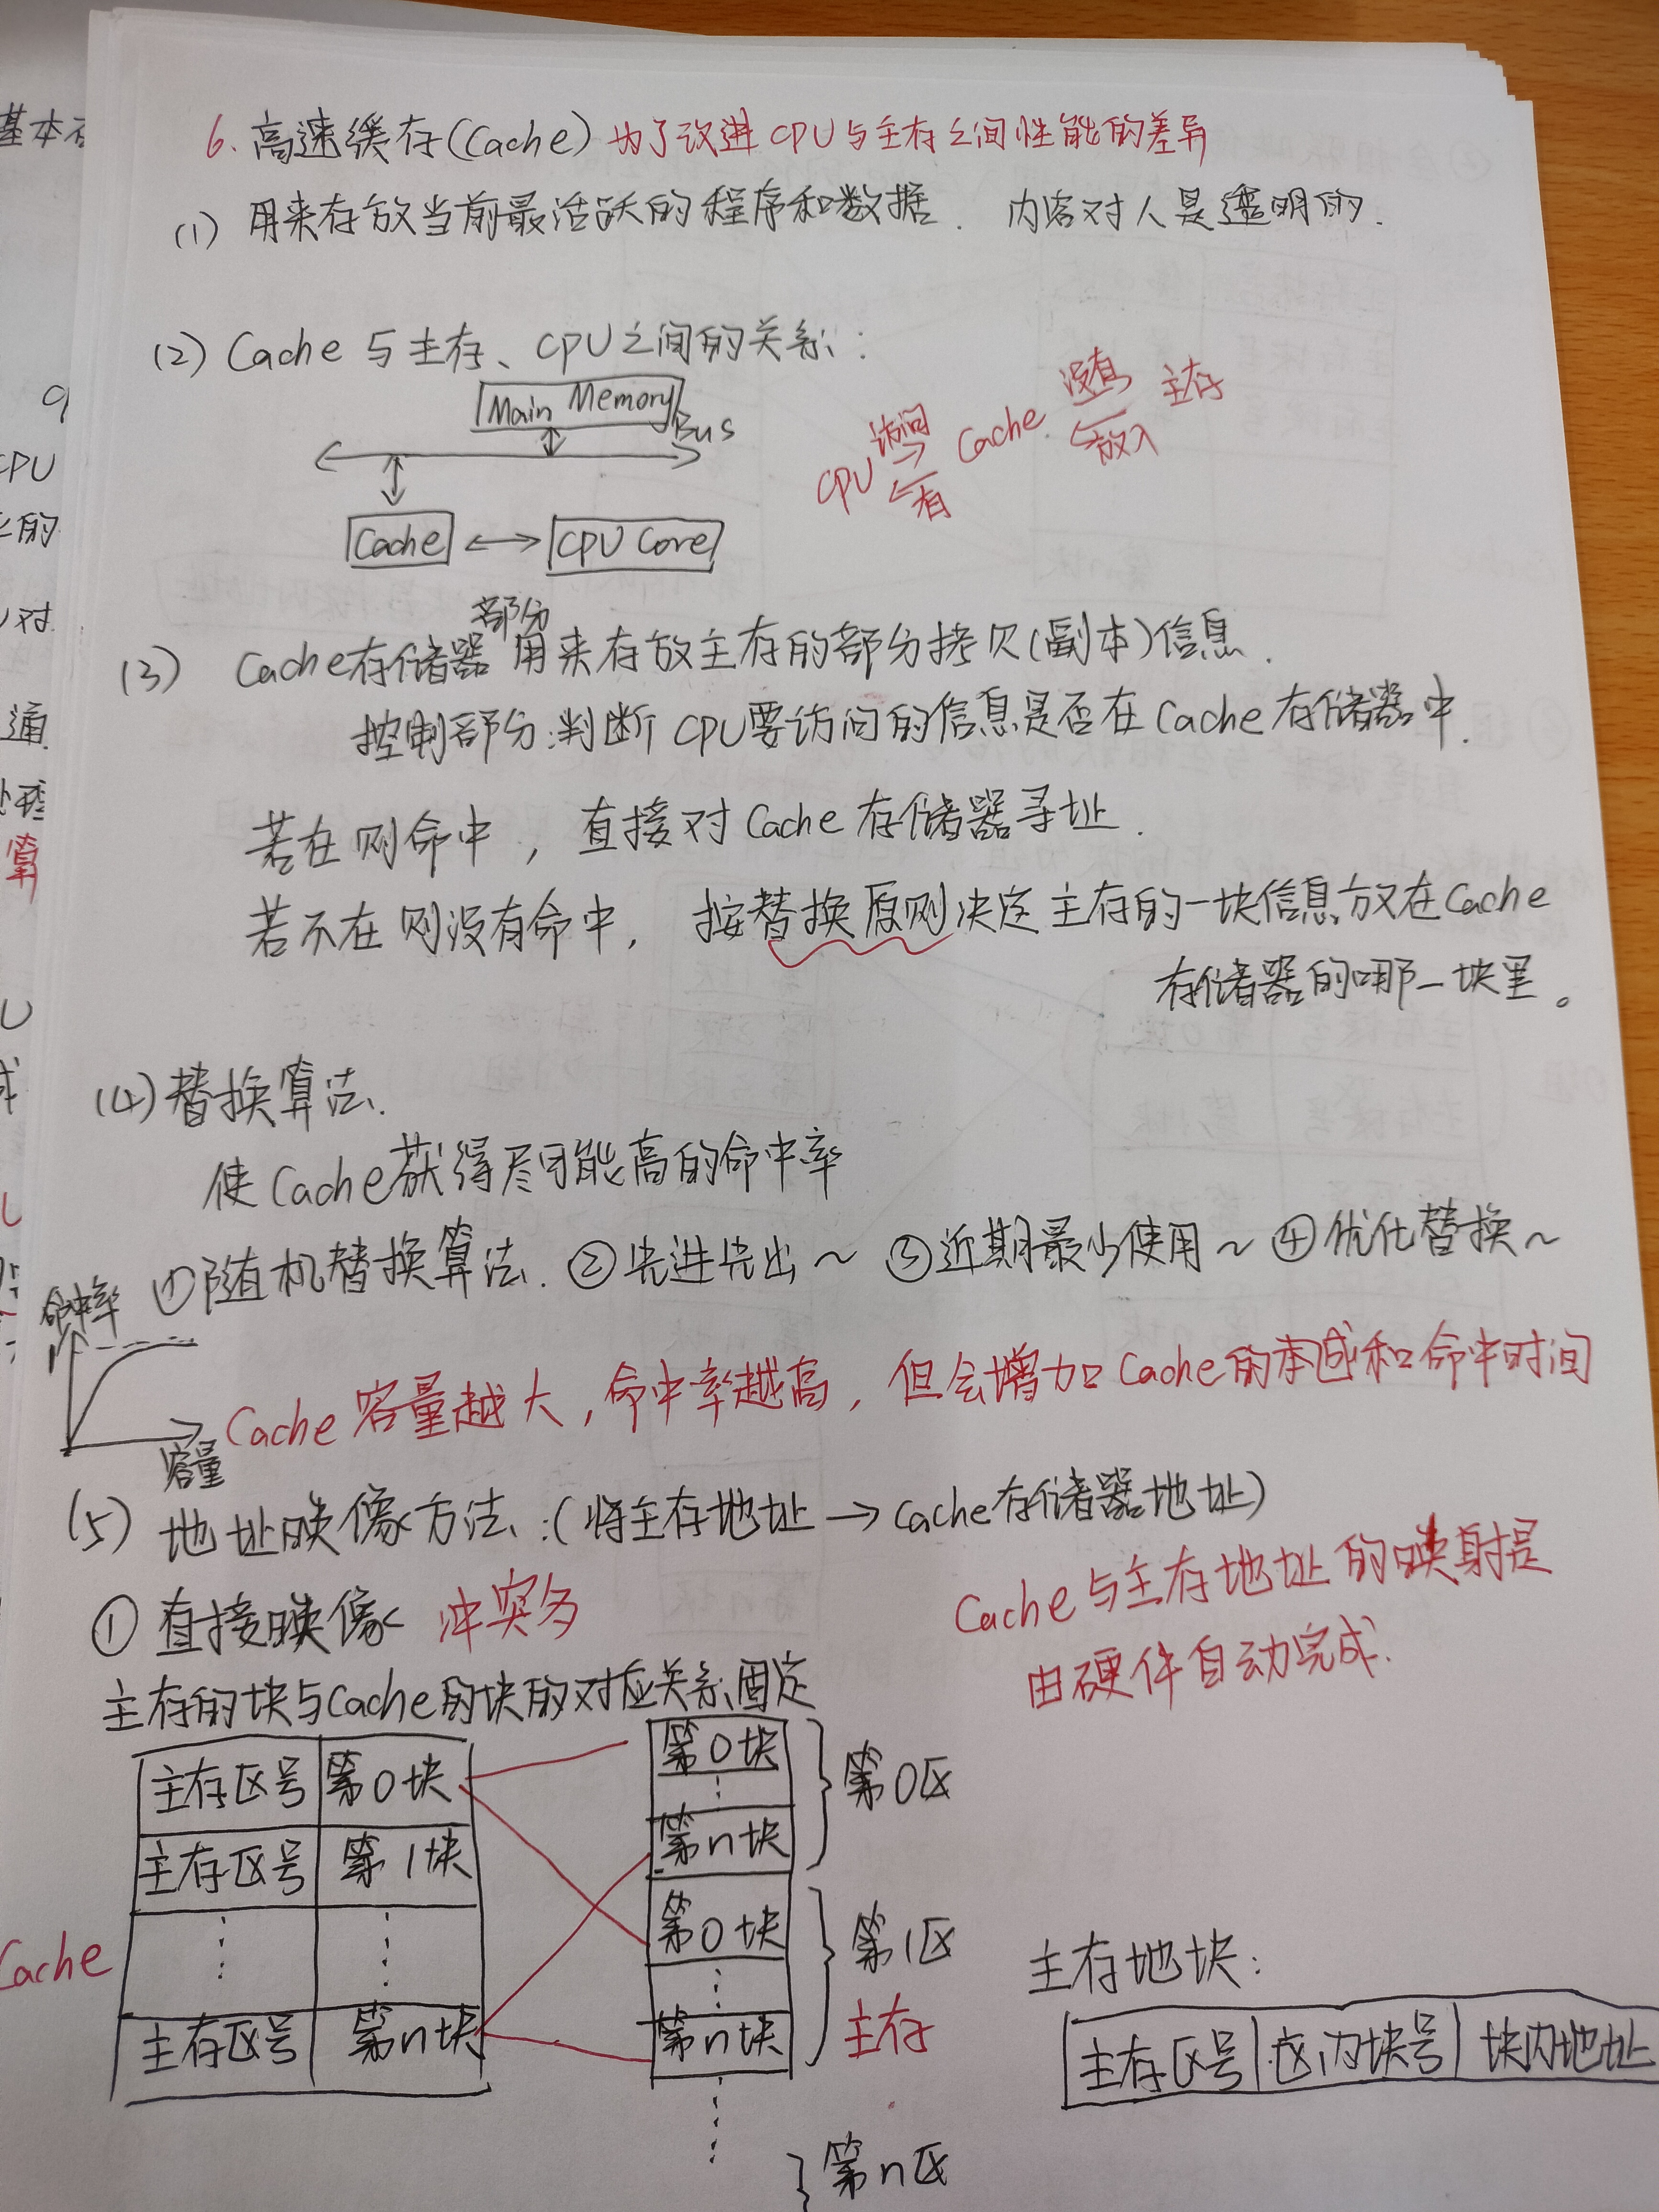 6. 高速缓存(Cache) 为了改进CPU与主存之间性能的差异
(1) 用来存放当前最活跃的程序和数据. 内容对人是透明的.
(2) Cache与主存、CPU之间的关系:
Main Memory
Bus
Cache
CPU Core
CPU 访问 有 Cache 没有 放入 主存
(3) Cache存储器部分用来存放主存的部分拷贝(副本)信息.
控制部分:判断CPU要访问的信息是否在Cache存储器中.
若在则命中, 直接对Cache存储器寻址.
若不在则没有命中, 按替换原则决定主存的一块信息放在Cache
存储器的哪一块里。
(4) 替换算法.
使Cache获得尽可能高的命中率
①随机替换算法. ②先进先出~ ③近期最少使用~ ④优化替换~
命中率
1
容量
Cache容量越大,命中率越高,但会增加Cache的成和命中时间
(5) 地址映像方法:(将主存地址→Cache存储器地址)
Cache与主存地址的映射是
由硬件自动完成.
① 直接映像 冲突多
主存的块与Cache的块的对应关系固定
Cache
主存区号 第0块
主存区号 第1块
⋮ ⋮
主存区号 第n块
第0块
⋮
第n块
第0区
第0块
⋮
第n块
第1区
主存
⋮
第n区
主存地块:
主存区号 区内块号 块内地址
基本
CPU
的
对
通
算
U